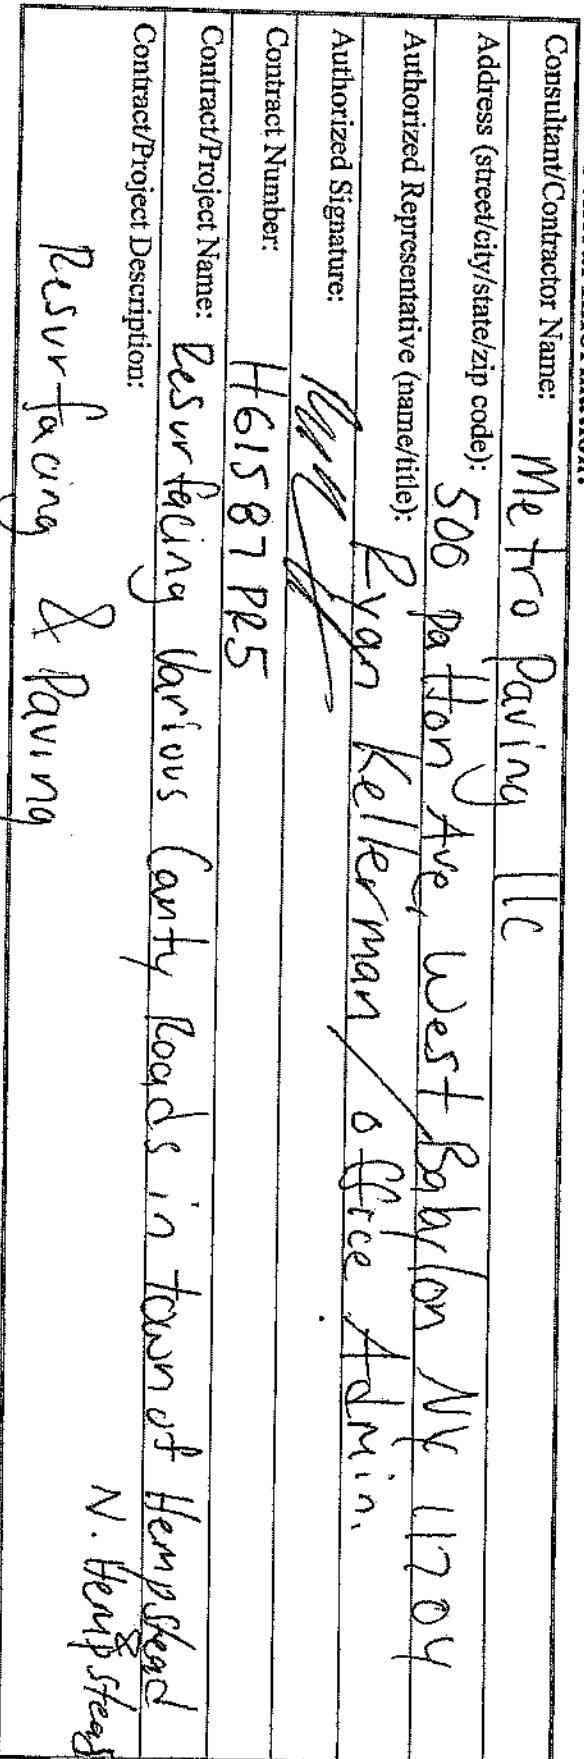 Consultant/Contractor Name: Metro Paving llc
Address (street/city/state/zip code): 500 Patton Ave, West Babylon NY 11704
Authorized Representative (name/title): Ryan Kellerman / office Admin.
Authorized Signature:
Contract Number: H61587PR5
Contract/Project Name: Resurfacing Various County Roads in town of Hempstead
& N. Hempstead
Contract/Project Description:
Resurfacing & Paving